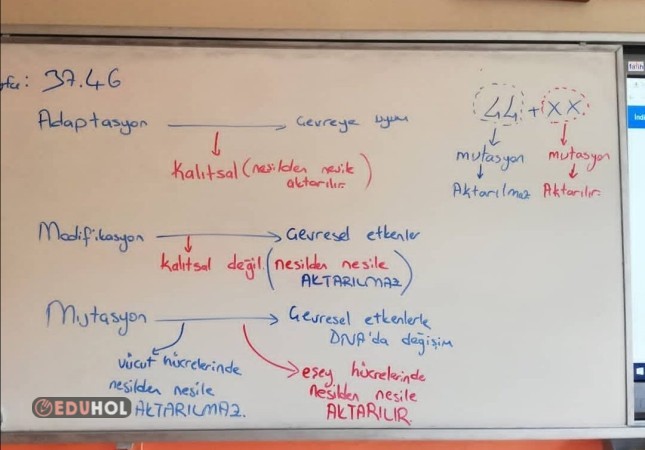 37.46
Adaptasyon → Çevreye uyum
Kalıtsal (nesilden nesile
aktarılır)
Modifikasyon → Çevresel etkenler
Kalıtsal değil. (nesilden nesile
AKTARILMAZ)
Mutasyon → Çevresel etkenlerle
DNA'da değişim
vücut hücrelerinde
nesilden nesile
AKTARILMAZ.
eşey hücrelerinde
nesilden nesile
AKTARILIR.
44 + XX
mutasyon mutasyon
Aktarılmaz Aktarılır
EDUHOL